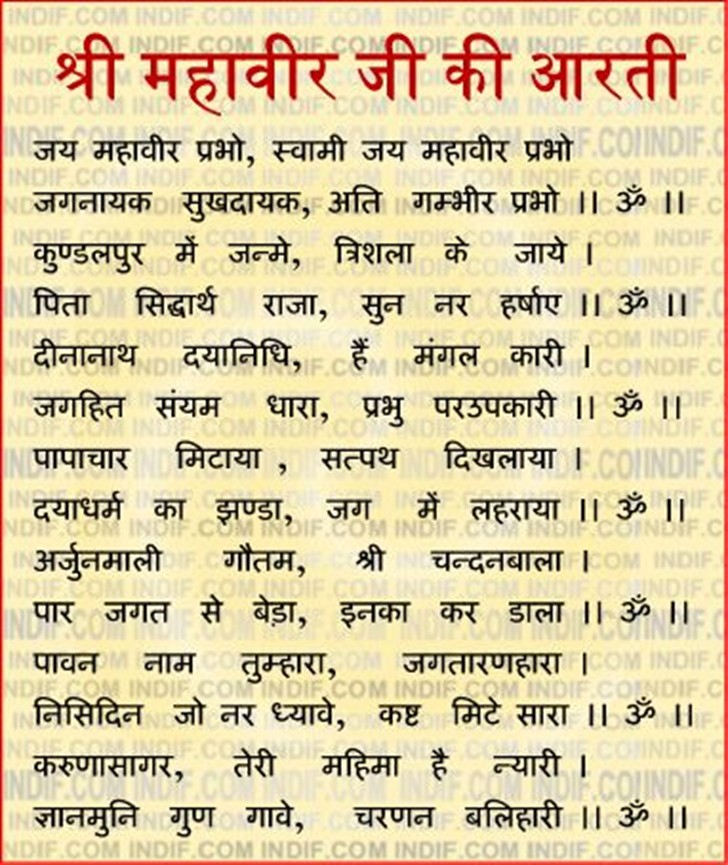 श्री महावीर जी की आरती
जय महावीर प्रभो, स्वामी जय महावीर प्रभो
जगनायक सुखदायक, अति गम्भीर प्रभो ।। ॐ ।।
कुण्डलपुर में जन्मे, त्रिशला के जाये ।
पिता सिद्धार्थ राजा, सुन नर हर्षाए ।। ॐ ।।
दीनानाथ दयानिधि, हैं मंगल कारी ।
जगहित संयम धारा, प्रभु परउपकारी ।। ॐ ।।
पापाचार मिटाया , सत्पथ दिखलाया ।
दयाधर्म का झण्डा, जग में लहराया ।। ॐ ।।
अर्जुनमाली गौतम, श्री चन्दनबाला ।
पार जगत से बेड़ा, इनका कर डाला ।। ॐ ।।
पावन नाम तुम्हारा, जगतारणहारा ।
निसिदिन जो नर ध्यावे, कष्ट मिटे सारा ।। ॐ ।।
करुणासागर, तेरी महिमा है न्यारी ।
ज्ञानमुनि गुण गावे, चरणन बलिहारी ।। ॐ ।।